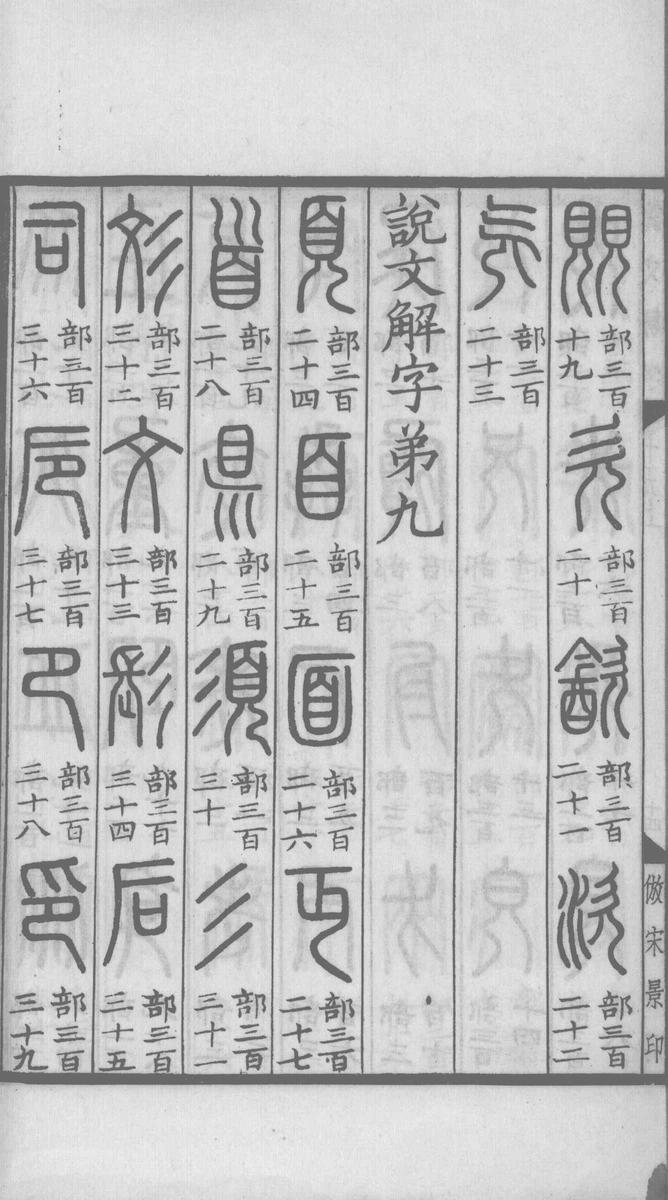 覞部三百十九 欠部三百二十 㱃部三百二十一 㳄部三百二十二
旡部三百二十三
說文解字弟九
頁部三百二十四 𦣻部三百二十五 面部三百二十六 丏部三百二十七
首部三百二十八 県部三百二十九 須部三百三十 彡部三百三十一
彣部三百三十二 文部三百三十三 髟部三百三十四 后部三百三十五
司部三百三十六 卮部三百三十七 卪部三百三十八 印部三百三十九
倣宋景印